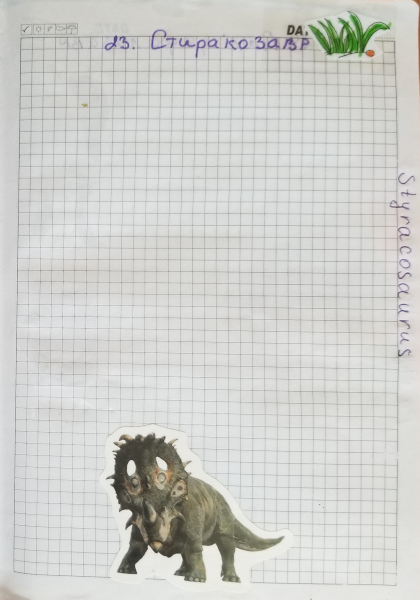 DA
23. Стиракозавр
Styracosaurus